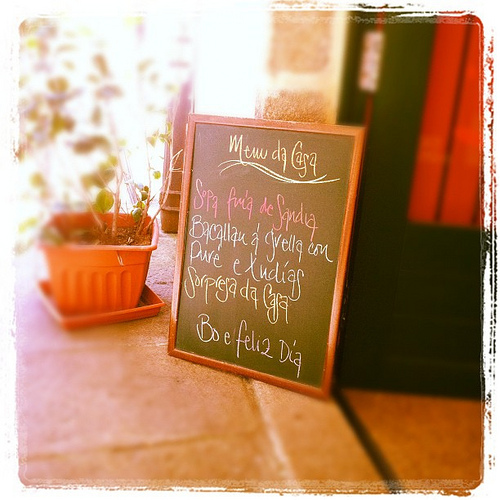 Menu da Casa
Sopa fría de Sandía
Bacallau á grella con
Puré e Xudías
Sorpresa da Casa
Bo e feliz Día